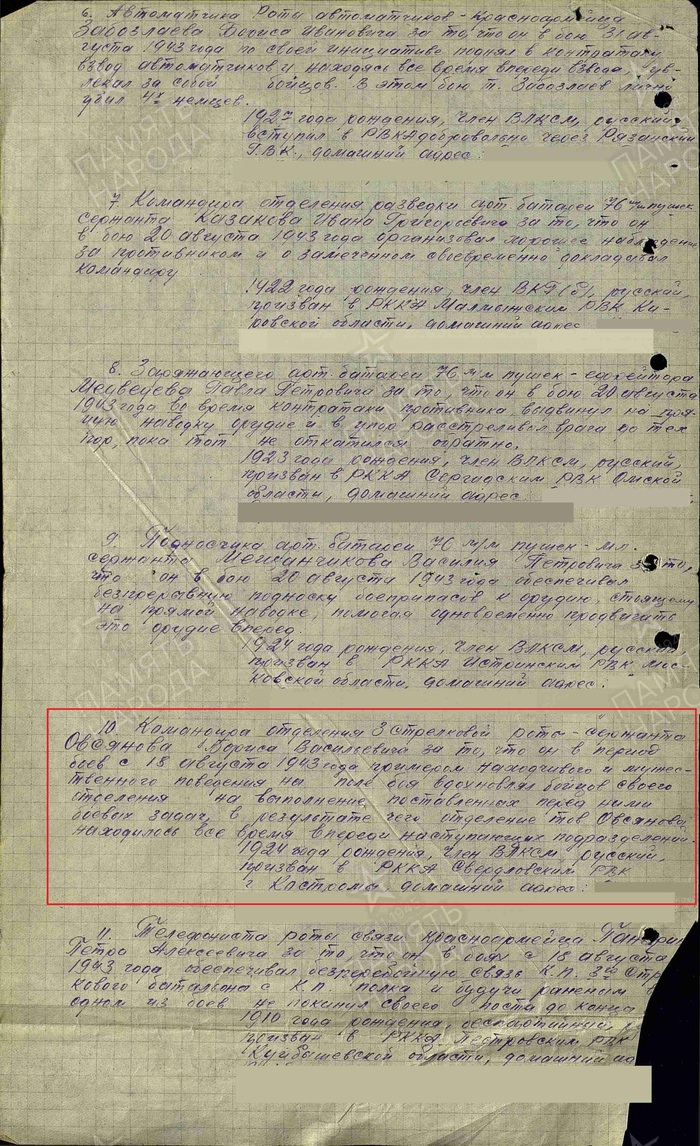 6. Автоматчика Роты автоматчиков - Красноармейца
Забозлаева Бориса Ивановича за то, что он в бою 31 ав-
густа 1943 года по своей инициативе поднял в контратаку
взвод автоматчиков и находясь все время впереди взвода, ув-
лекал за собой бойцов. В этом бою т. Забозлаев лично
убил 4х немцев.
1927 года рождения, член ВЛКСМ, русский,
вступил в РККА добровольно через Рязанский
Г.В.К., домашний адрес:
7. Командира отделения разведки арт. батареи 76 м/м пушек
сержанта Казакова Ивана Григорьевича за то, что он
в бою 20 августа 1943 года организовал хорошее наблюдение
за противником и о замеченном своевременно докладывал
командиру
1922 года рождения, член ВКП(б), русский,
призван в РККА Малмыжским РВК Ки-
ровской области, домашний адрес
8. Заряжающего арт. батареи 76 м/м пушек - ефрейтора
Медведева Павла Петровича за то, что он в бою 20 августа
1943 года во время контратаки противника выдвинул на пря-
мую наводку орудие и в упор расстреливал врага до тех
пор, пока тот не откатился обратно.
1923 года рождения, член ВЛКСМ, русский,
призван в РККА РВК Омской
области, домашний адрес
9. Подносчика арт. батареи 76 м/м пушек - мл.
сержанта Мещанчикова Василия Петровича за то,
что он в бою 20 августа 1943 года обеспечивал
безпрерывную подноску боеприпасов к орудию, стоящему
на прямой наводке, помогая одновременно продвигать
это орудие вперед.
1924 года рождения, член ВЛКСМ, русский,
призван в РККА Истринским РВК Мос-
ковской области, домашний адрес:
10. Командира отделения 3 стрелковой роты - сержанта
Овсянова Бориса Васильевича за то, что он в период
боев с 18 августа 1943 года примером находчивого и мужес-
твенного поведения на поле боя вдохновлял бойцов своего
отделения на выполнение поставленных перед ними
боевых задач, в результате чего отделение тов Овсянова
находилось все время впереди наступающих подразделений.
1924 года рождения, член ВЛКСМ, русский,
призван в РККА Свердловским РВК
г. Костромы, домашний адрес:
11. Телефониста роты связи красноармейца
Петра Алексеевича за то, что он в боях с 18 августа
1943 года, обеспечивал безперебойную связь К.П. 3го стрел
кового батальона с К.П. полка и будучи раненым в
одном из боев не покинул своего поста до конца
1910 года рождения, беспартийный,
призван в РККА Петровским РВК
Куйбышевской области, домашний ад
ПАМЯТЬ
НАРОДА